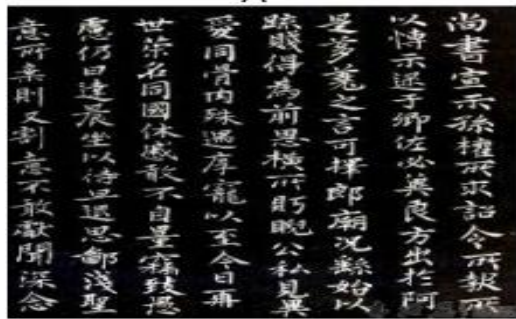 尚書宣示孫權所求詔令所報所
以博示逮于卿佐必冀良方出於阿
是芻蕘之言可擇郎廟況繇始以
疏賤得為前恩橫所眄睨公私見異
愛同骨肉殊遇厚寵以至今日再
世榮名同國休慼敢不自量竊致愚
慮仍日達晨坐以待旦退思鄙淺聖
意所棄則又割意不敢獻聞深念